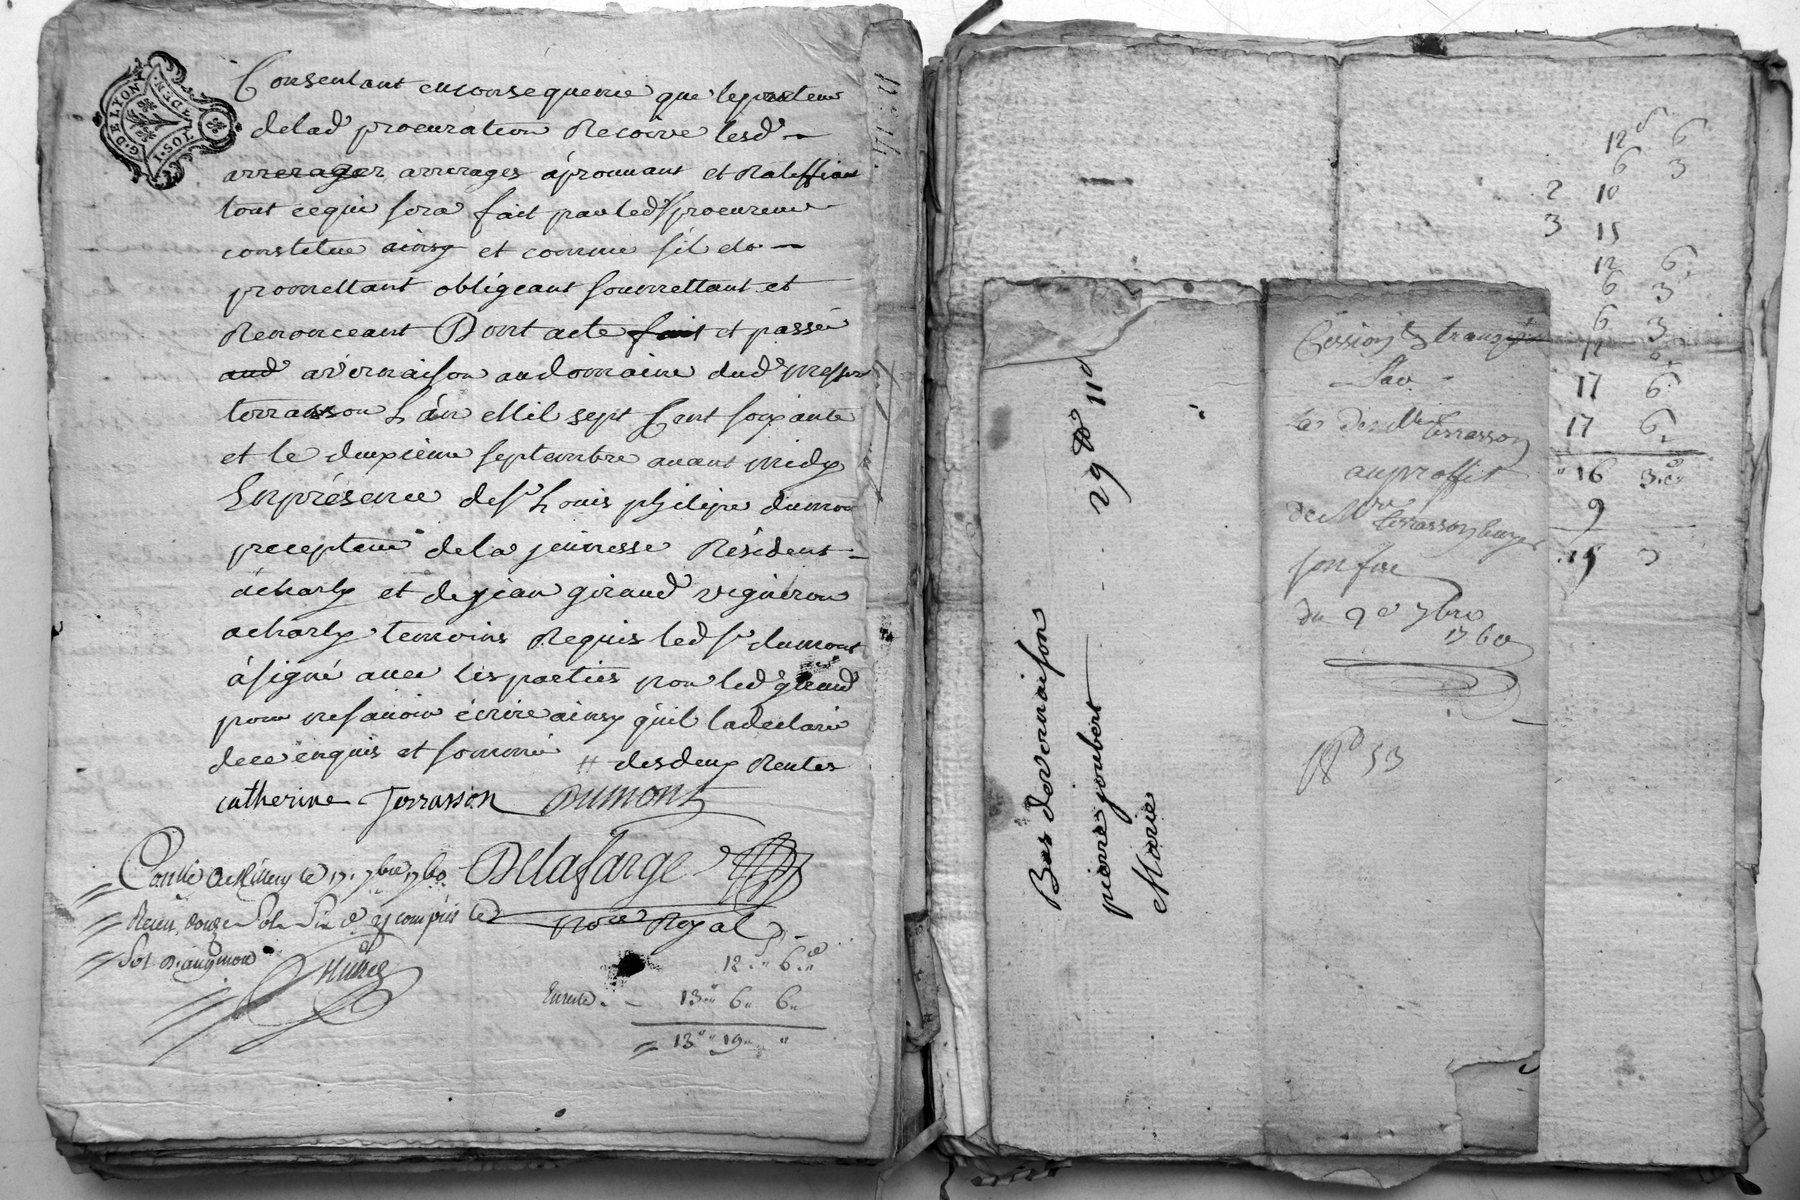 G. DE LYON
I. SOL. 4 DEN.
Consentant en consequence que le porteur
de lad procuration Recoive lesd
arrerages arrerages áprouuant et Ratiffiant
tout ce qui sera fait par led procureur
constitue ainsy et comme s'il do
promettant obligeant soumettant et
Renonceant Dont acte fait et passé
aud a vernaison au domaine dud messire
terrasson L'an Mil sept Cent soixante
et le deuxieme septembre auant midy
En présence de Sr Louis philipe dumon
precepteur de la jeunesse Résident
á charly et de jean giraud vigneron
a charly temoins Requis led Sr dumont
á signé auec les parties non led giraud
pour ne sauoir écrire ainsy quil la declaré
de ce enquis et sommé # des deux Rentes
catherine Terrasson DUMONT
Conllé a Millery le 17. 7bre 1760 Delafarge
Receu douze Sols Six d y compris les
nore Royal
Sol d'augmon
12 " 6 d
13 " 6 " 6 "
13 " 19 "
Bas de vernaison
pierre joubert
Marie
29 11d
Cession &
Par
la Demlle terrasson
au proffit
de Mre terrasson
son frere
du 2e 7bre
1760
No 53
12 6
6 3
2 10
3 15
12 6
6 3
6 3
12 6
17 6
17 6
16 3
9
15 3